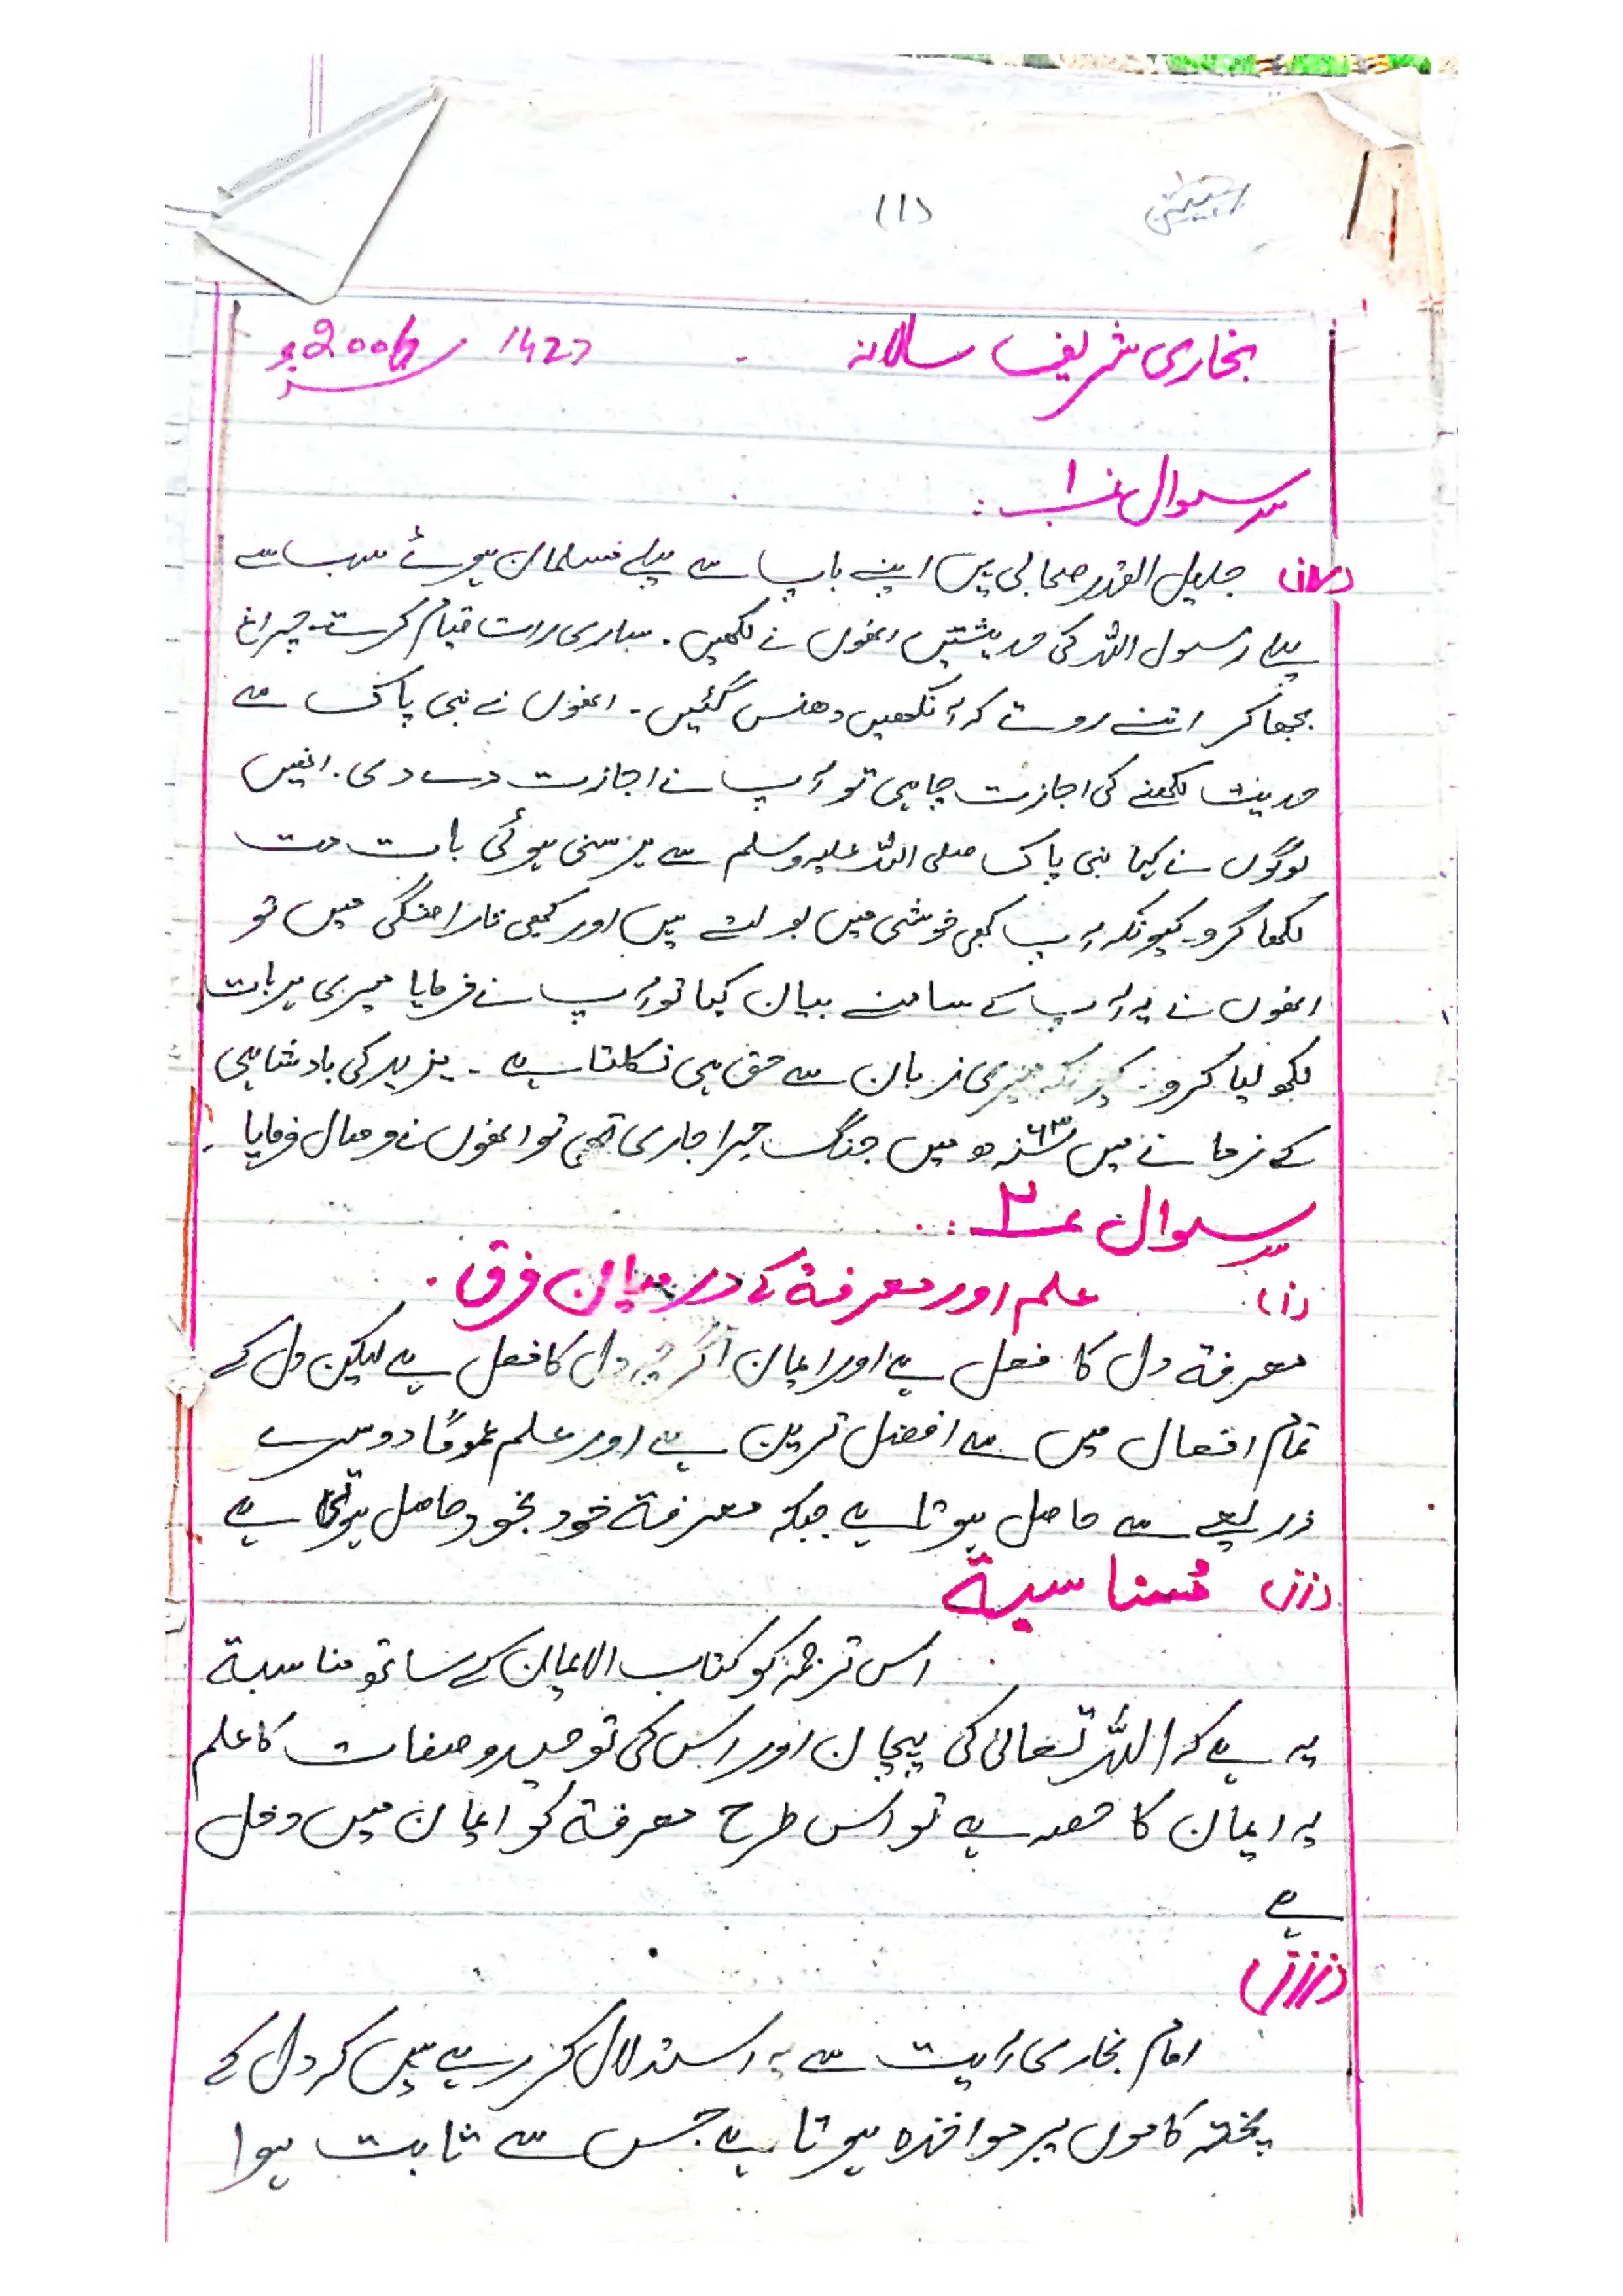 (1)
بخاری شریف سالانہ - 1427 / 2006ء
سوال نمبر ۱ :
جلیل القدر صحابی ہیں اپنے باپ سے پہلے مسلمان ہوئے سب سے
پہلے رسول اللہ کی حدیثیں انھوں نے لکھیں۔ ساری رات قیام کرتے۔ چراغ
بجھا کر اتنے روتے کہ آنکھیں دھنس گئیں۔ انھوں نے نبی پاک سے
حدیث لکھنے کی اجازت چاہی تو آپ نے اجازت دے دی۔ انھیں
لوگوں نے کہا نبی پاک صلی اللہ علیہ وسلم سے ہر سنی ہوئی بات مت
لکھا کرو۔ کیونکہ آپ کبھی خوشی میں بولتے ہیں اور کبھی ناراضگی میں تو
انھوں نے یہ آپ کے سامنے بیان کیا تو آپ نے فرمایا میری ہر بات
لکھ لیا کرو۔ کیونکہ میری زبان سے حق ہی نکلتا ہے۔ یزید کی بادشاہی
کے زمانے میں ۶۳ھ میں جنگ حرا جاری تھی تو انھوں نے وصال فرمایا۔
سوال ۲ :
(i) علم اور معرفۃ کے درمیان فرق۔
معرفۃ دل کا فعل ہے اور ایمان اگرچہ دل کا فعل ہے لیکن دل کے
تمام افعال میں سے افضل ترین ہے اور علم عموماً دوسرے
ذریعے سے حاصل ہوتا ہے جبکہ معرفۃ خود بخود حاصل ہوتی ہے
(ii) مناسبۃ
اس ترجمہ کو کتاب الایمان کے ساتھ مناسبۃ
یہ ہے کہ اللہ تعالیٰ کی پہچان اور اس کی توحید و صفات کا علم
یہ ایمان کا حصہ ہے تو اس طرح معرفۃ کو ایمان میں دخل
ہے
(iii)
امام بخاری آیت سے یہ استدلال کر رہے ہیں کہ دل کے
پختہ کاموں پر مواخذہ ہوتا ہے جس سے ثابت ہوا